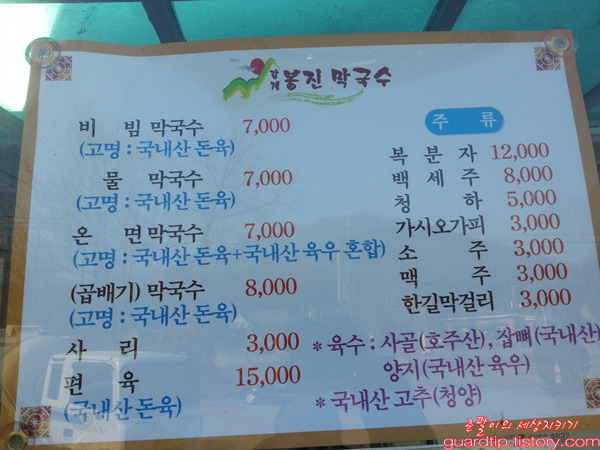 봉진 막국수
비 빔 막국수 7,000
(고명 : 국내산 돈육)
물 막국수 7,000
(고명 : 국내산 돈육)
온 면 막국수 7,000
(고명 : 국내산 돈육+국내산 육우 혼합)
(곱배기) 막국수 8,000
(고명 : 국내산 돈육)
사 리 3,000
편 육 15,000
(국내산 돈육)
주 류
복 분 자 12,000
백 세 주 8,000
청 하 5,000
가시오가피 3,000
소 주 3,000
맥 주 3,000
한길막걸리 3,000
* 육수 : 사골(호주산), 잡뼈(국내산)
양지(국내산 육우)
* 국내산 고추(청양)
촌딸이의 세상지키기
guardtip.tistory.com